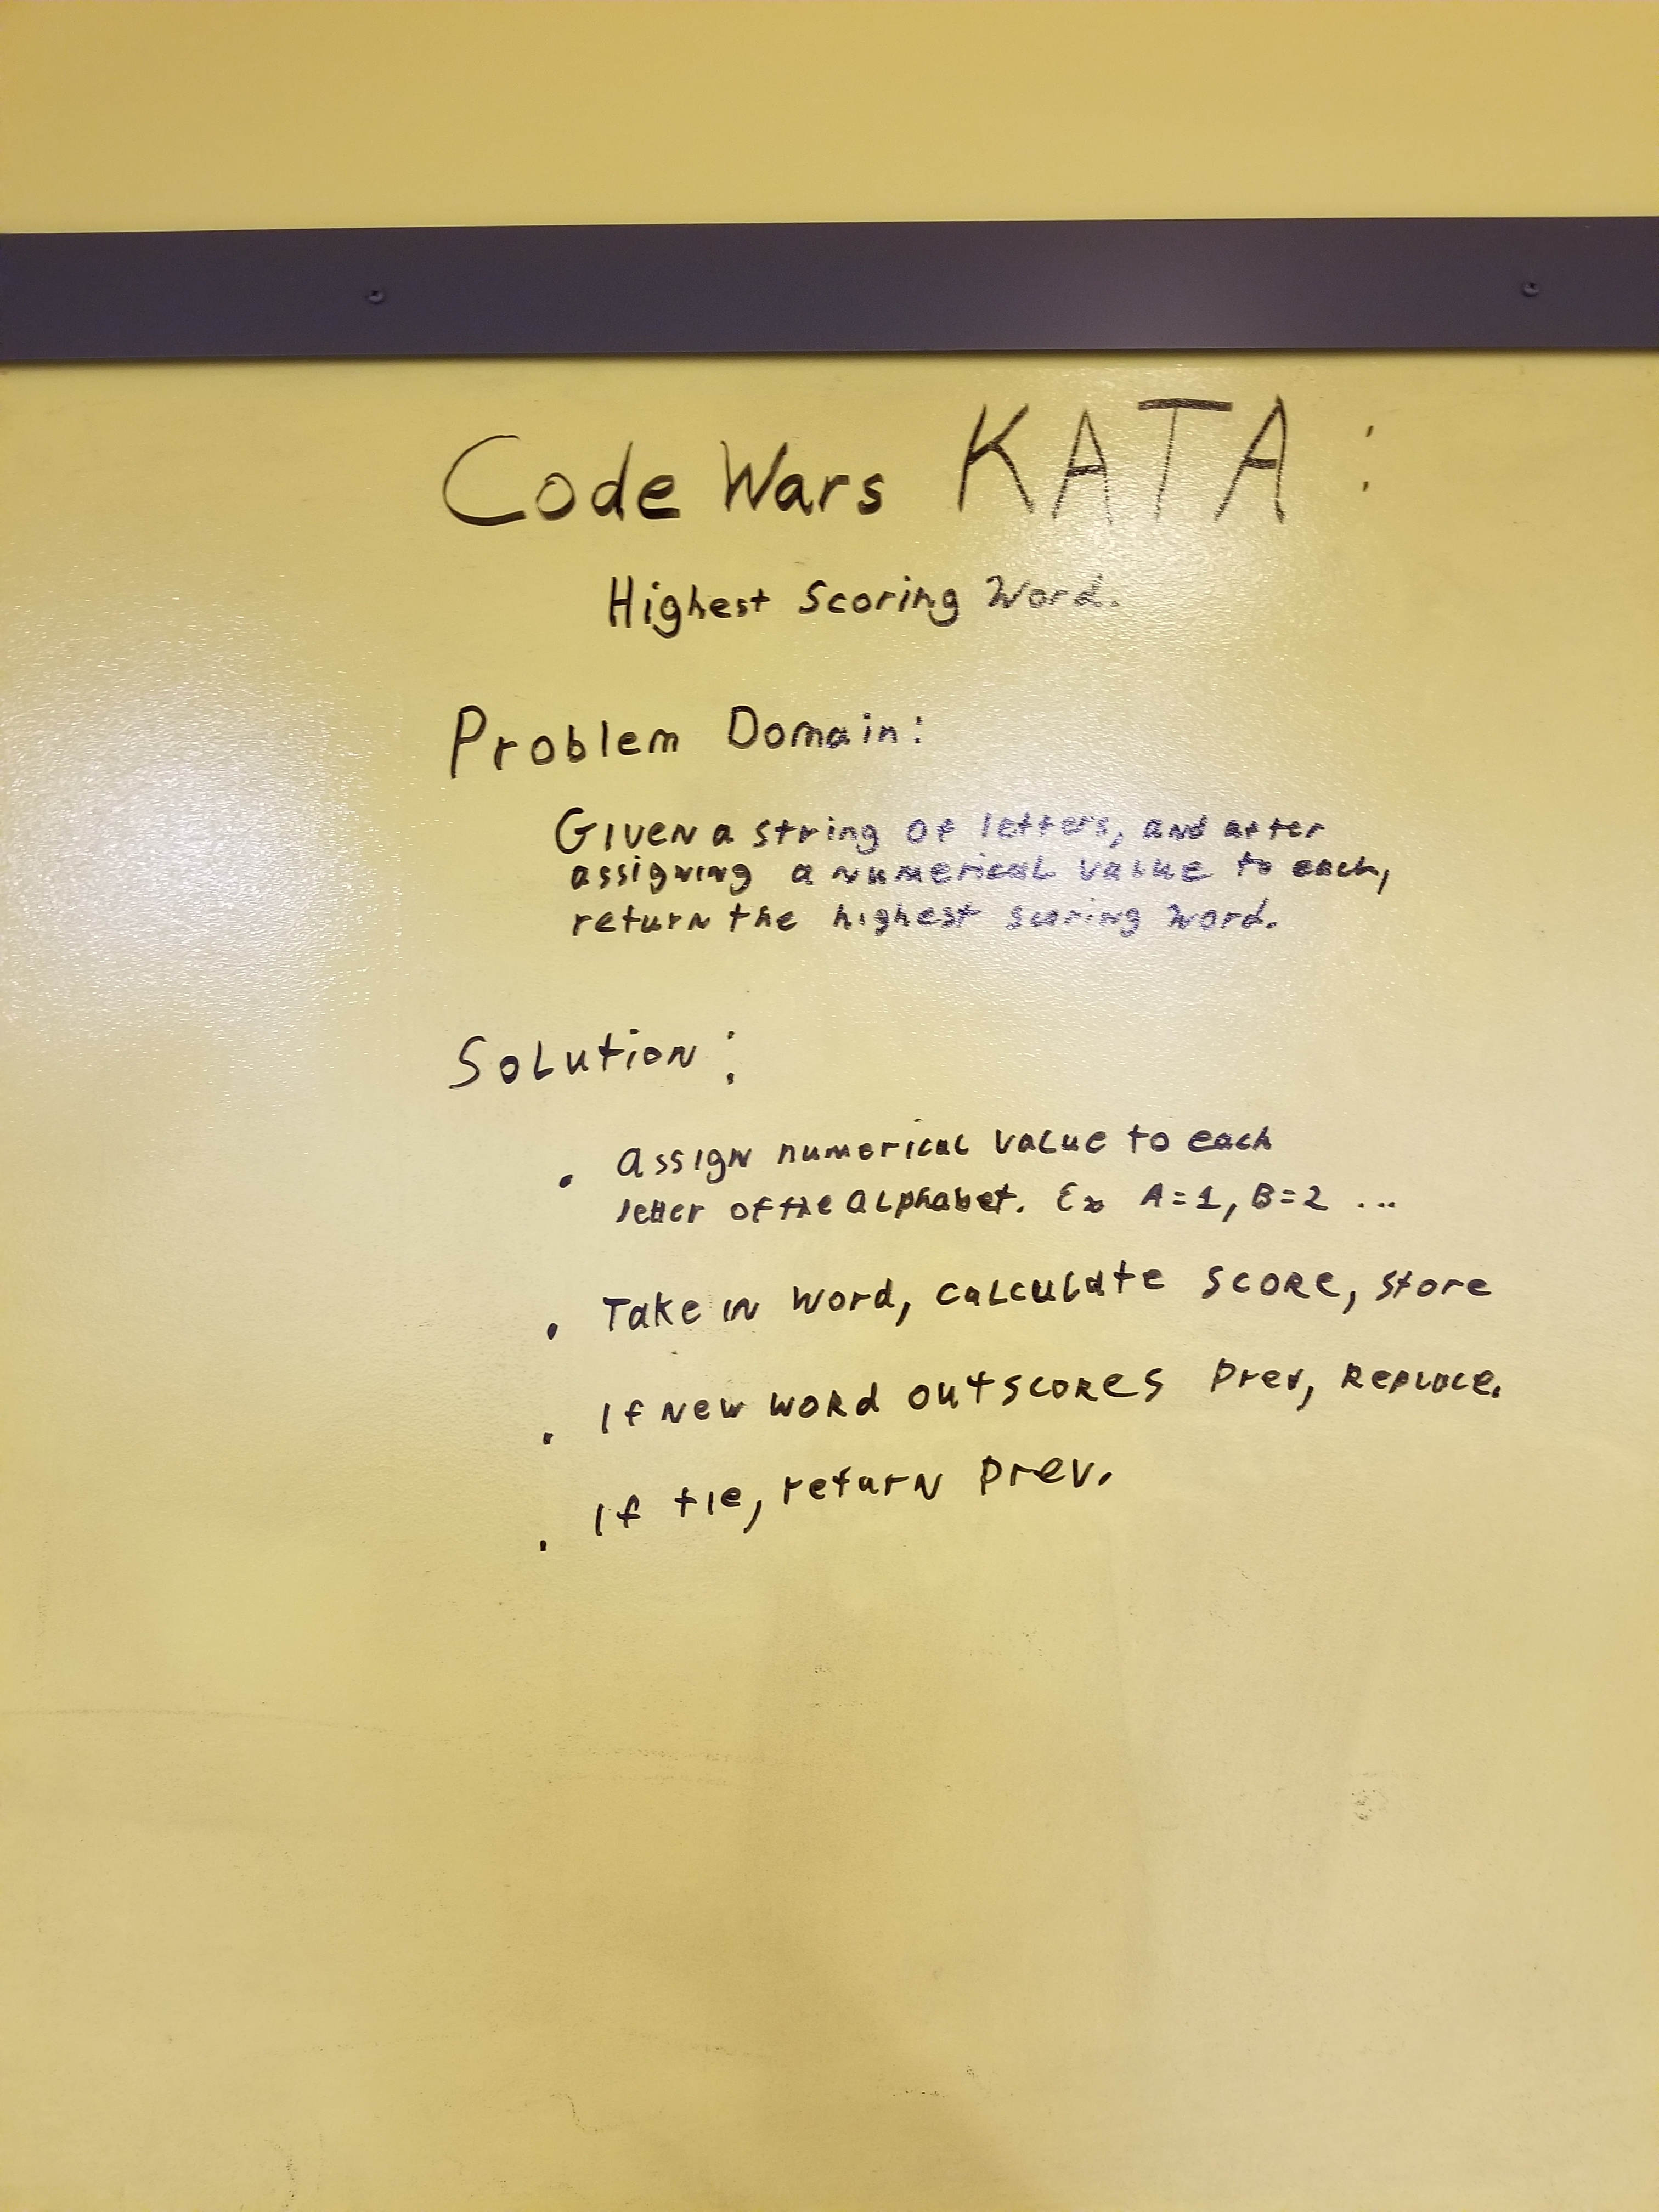 Code Wars KATA :
Highest Scoring Word.
Problem Domain:
GIVEN a string of letters, and after
assigning a numerical value to each,
return the highest scoring word.
Solution :
. assign numerical value to each
letter of the alphabet. Ex A=1, B=2 ...
. Take in word, calculate score, store
. If new word outscores prev, Replace.
. If tie, return prev.